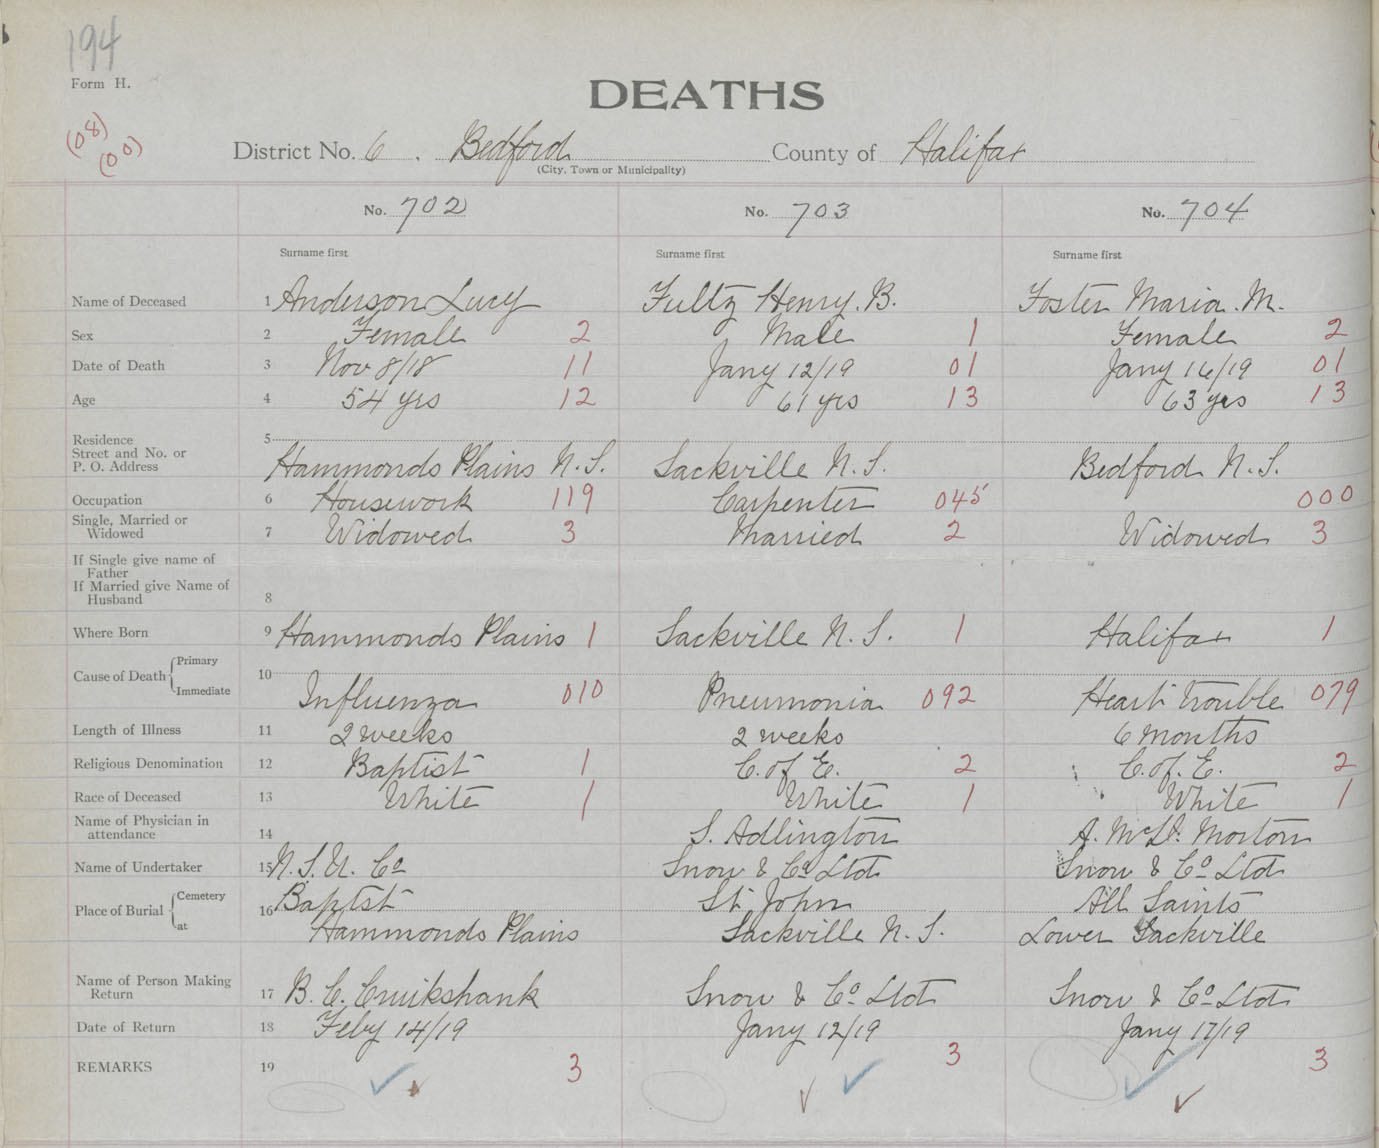 194
Form H.
DEATHS
(08)
(00)
District No. 6. Bedford County of Halifax
(City, Town or Municipality)
No. 702 No. 703 No. 704
Surname first Surname first Surname first
Name of Deceased 1 Anderson Lucy Fultz Henry. B. Foster Maria. M.
Sex 2 Female 2 Male 1 Female 2
Date of Death 3 Nov 8/18 11 Jany 12/19 01 Jany 16/19 01
Age 4 54 yrs 12 61 yrs 13 63 yrs 13
Residence 5
Street and No. or
P. O. Address Hammonds Plains N.S. Sackville N.S. Bedford N.S.
Occupation 6 Housework 119 Carpenter 045 000
Single, Married or
Widowed 7 Widowed 3 Married 2 Widowed 3
If Single give name of
Father
If Married give Name of
Husband 8
Where Born 9 Hammonds Plains 1 Sackville N.S. 1 Halifax 1
Primary
Cause of Death 10
Immediate Influenza 010 Pneumonia 092 Heart trouble 079
Length of Illness 11 2 weeks 2 weeks 6 months
Religious Denomination 12 Baptist 1 C. of E. 2 C. of. E. 2
Race of Deceased 13 White 1 White 1 White 1
Name of Physician in
attendance 14 S. Adlington A. McD. Morton
Name of Undertaker 15 N.S.U. Co Snow & Co Ltd Snow & Co Ltd
Cemetery Baptist St John All Saints
Place of Burial 16
at Hammonds Plains Sackville N.S. Lower Sackville
Name of Person Making
Return 17 B. C. Cruikshank Snow & Co Ltd Snow & Co Ltd
Date of Return 18 Feby 14/19 Jany 12/19 Jany 17/19
REMARKS 19 3 3 3